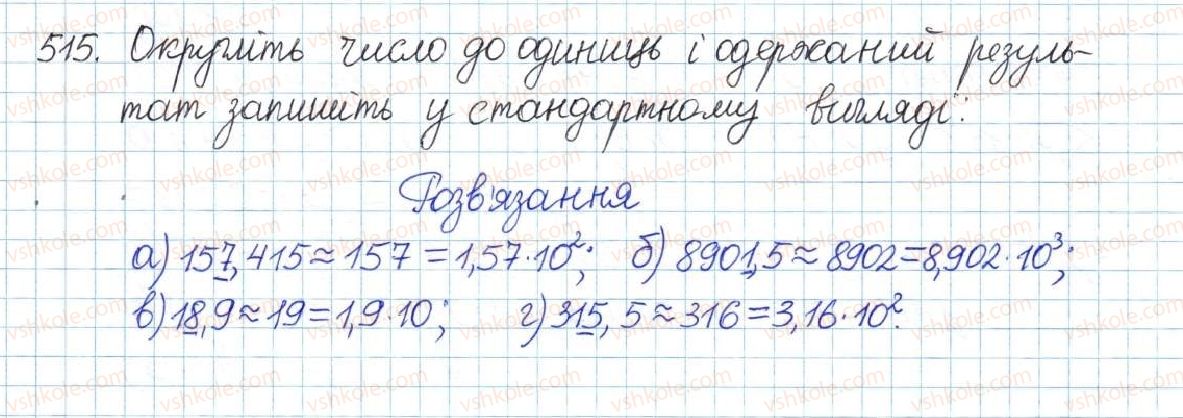 515. Округліть число до одиниць і одержаний резуль-
тат запишіть у стандартному вигляді:
Розв'язання
а) 157,415 ≈ 157 = 1,57·10²; б) 8901,5 ≈ 8902 = 8,902·10³;
в) 18,9 ≈ 19 = 1,9·10; г) 315,5 ≈ 316 = 3,16·10².